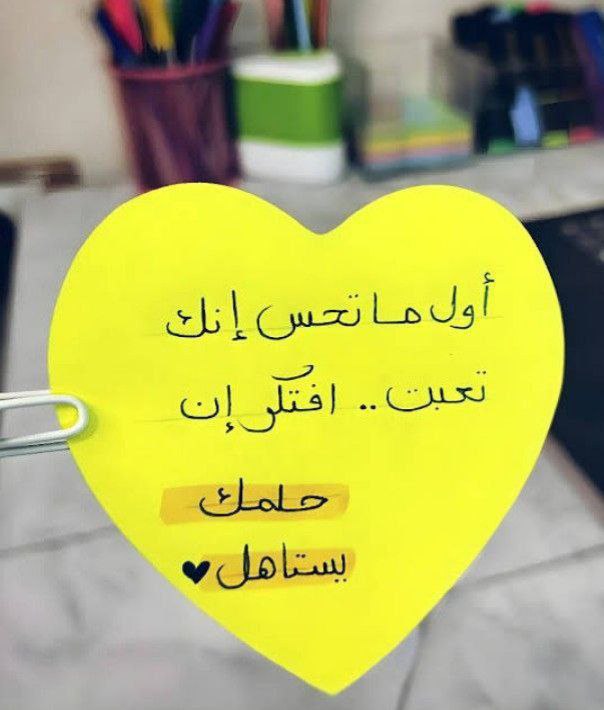 أول ما تحس إنك
تعبت .. افتكر إن
حلمك
يستاهل ♥